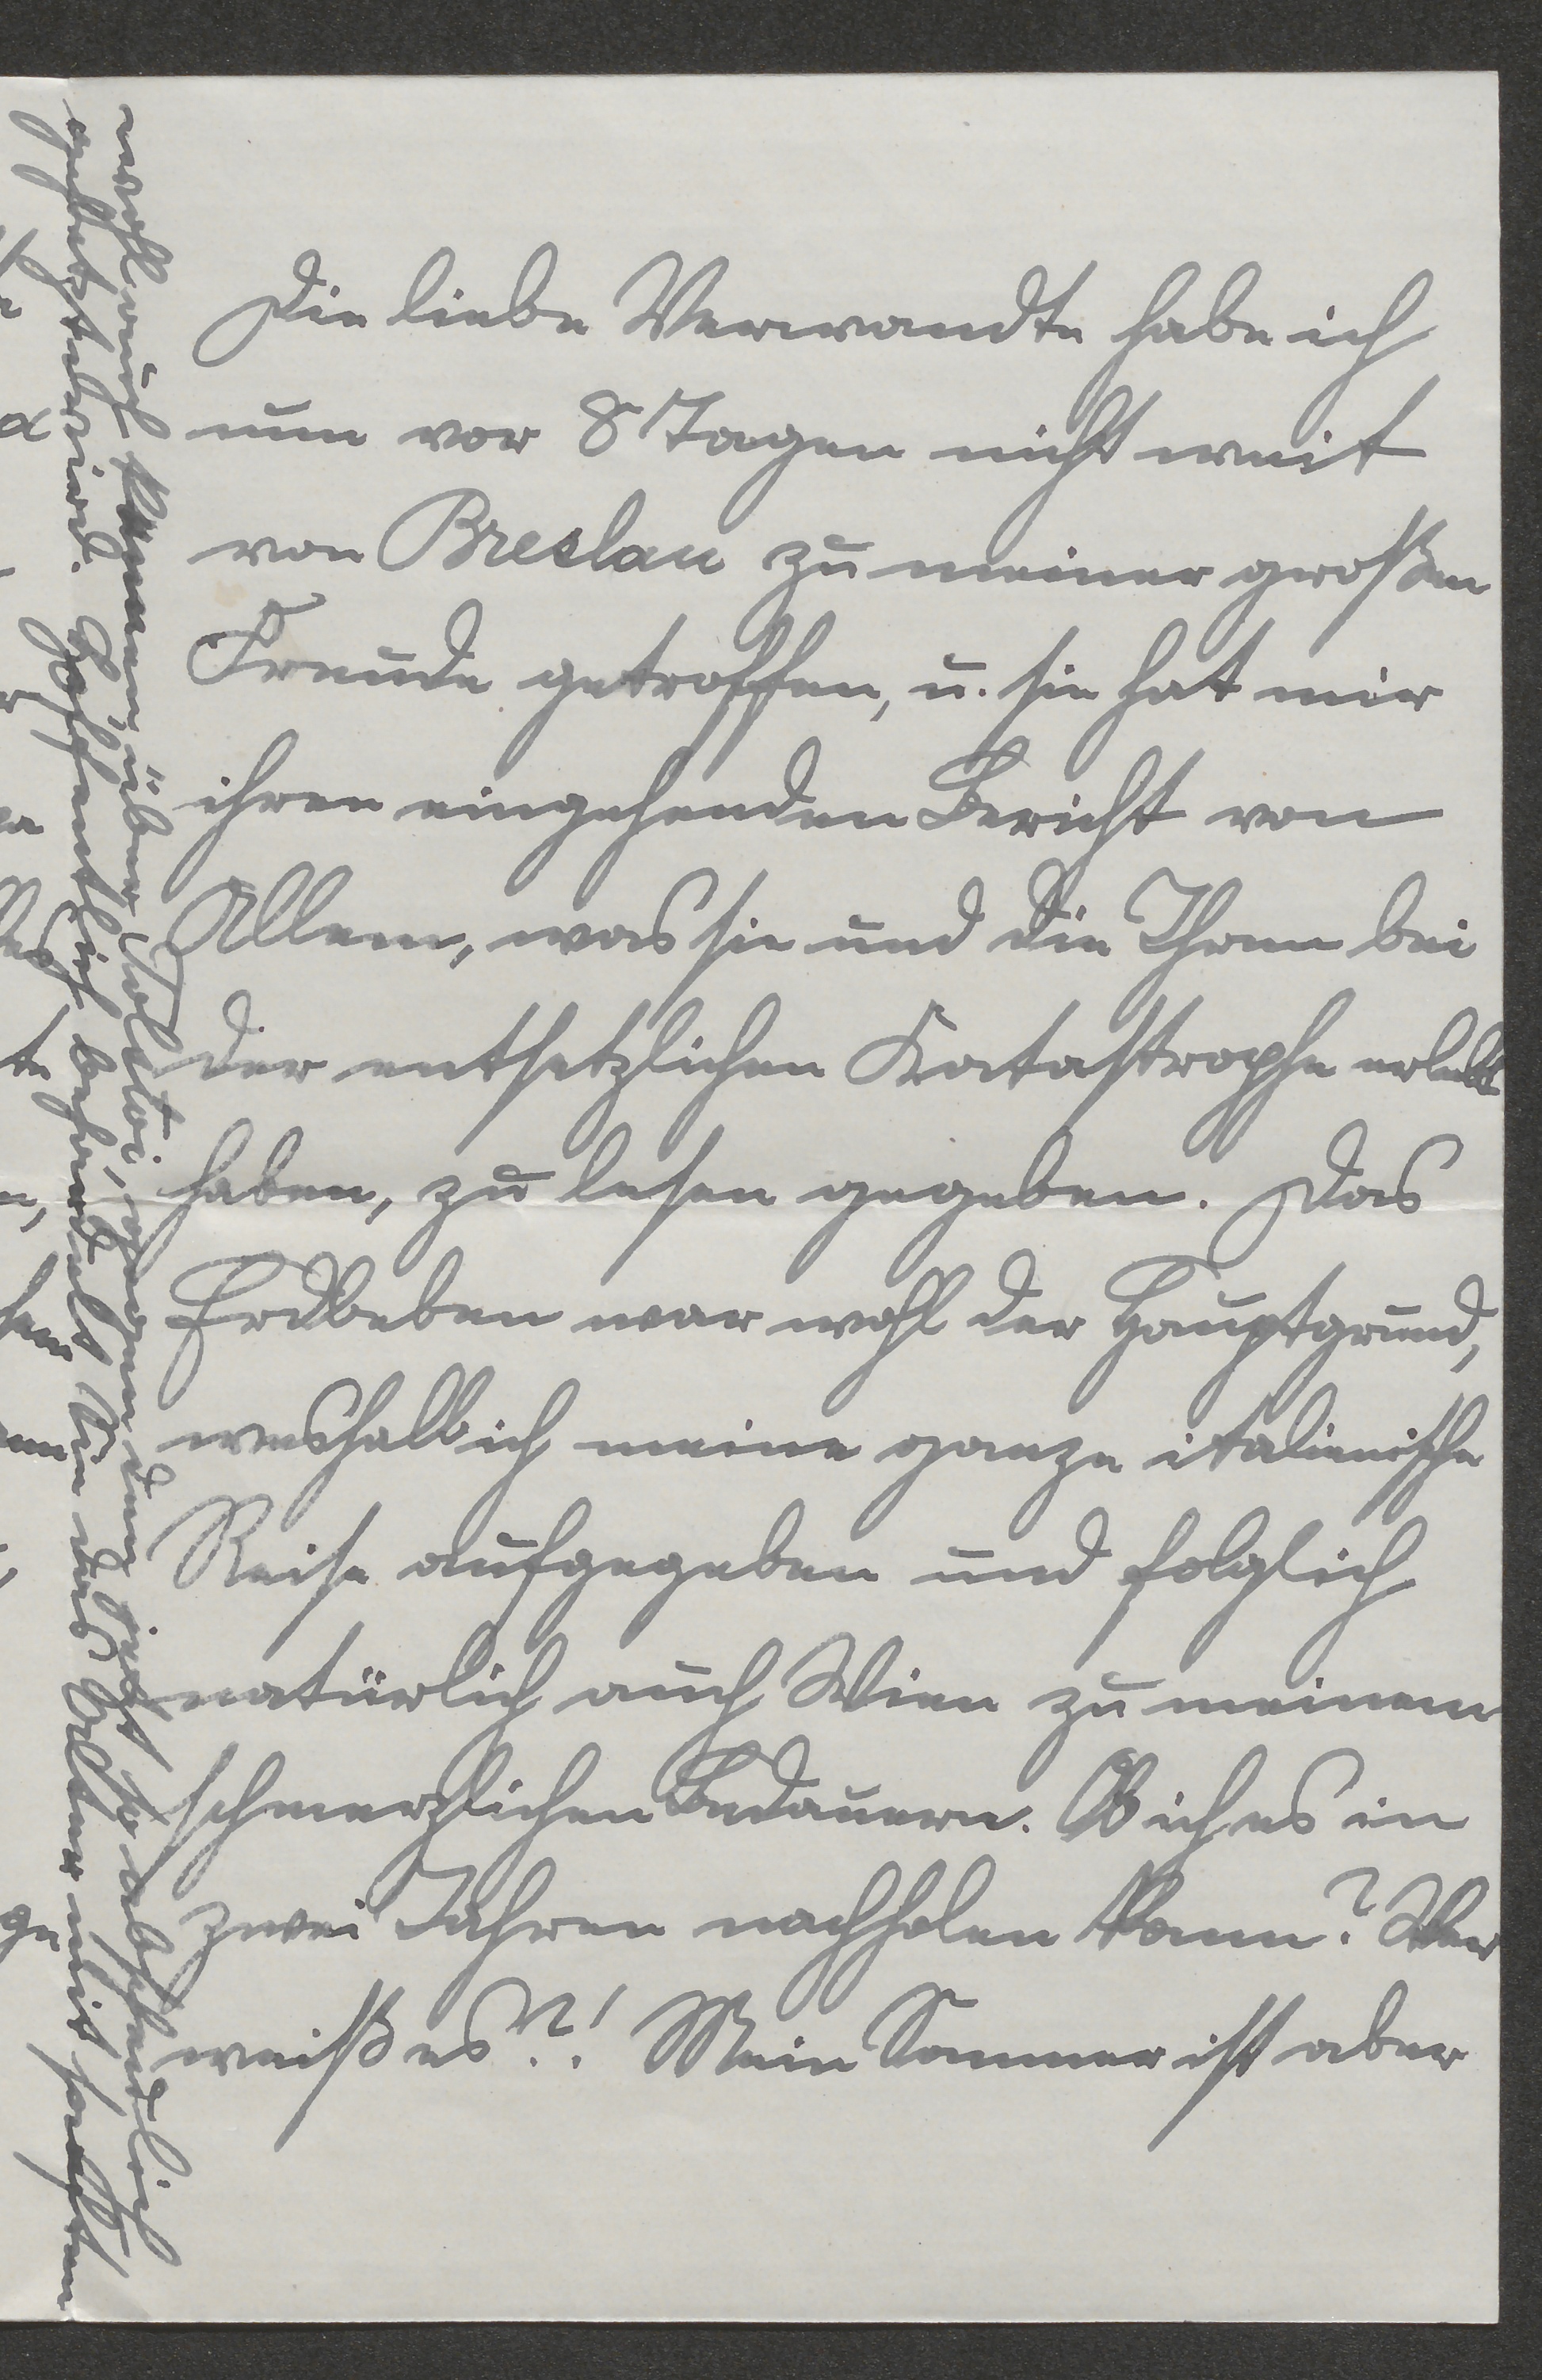 Die liebe Verwandte habe ich
nun vor 8 Tagen nicht weit
von Breslau zu meiner großen
Freude getroffen, u. sie hat mir
ihren eingehenden Bericht von
Allem, was sie und die Ihren bei
der entsetzlichen Katastrophe erlebt
haben, zu lesen gegeben. Das
Erdbeben war wohl der Hauptgrund,
weshalb ich meine ganze italienische
Reise aufgegeben und folglich
natürlich auch Wien zu meinem
schmerzlichen Bedauern. Ob ich es in
zwei Jahren nachholen kann? Wer
weiß es?! Mein Sommer ist aber
noch auch können, über Tolstoi, gegen den jetzt so abscheulich
gehetzt wird. Hoffentlich